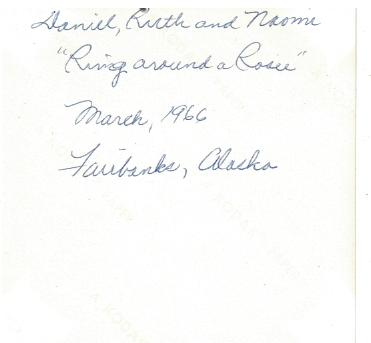 Daniel, Ruth and Naomi
"Ring around a Rosie"
March, 1966
Fairbanks, Alaska
A KODAK PAPER